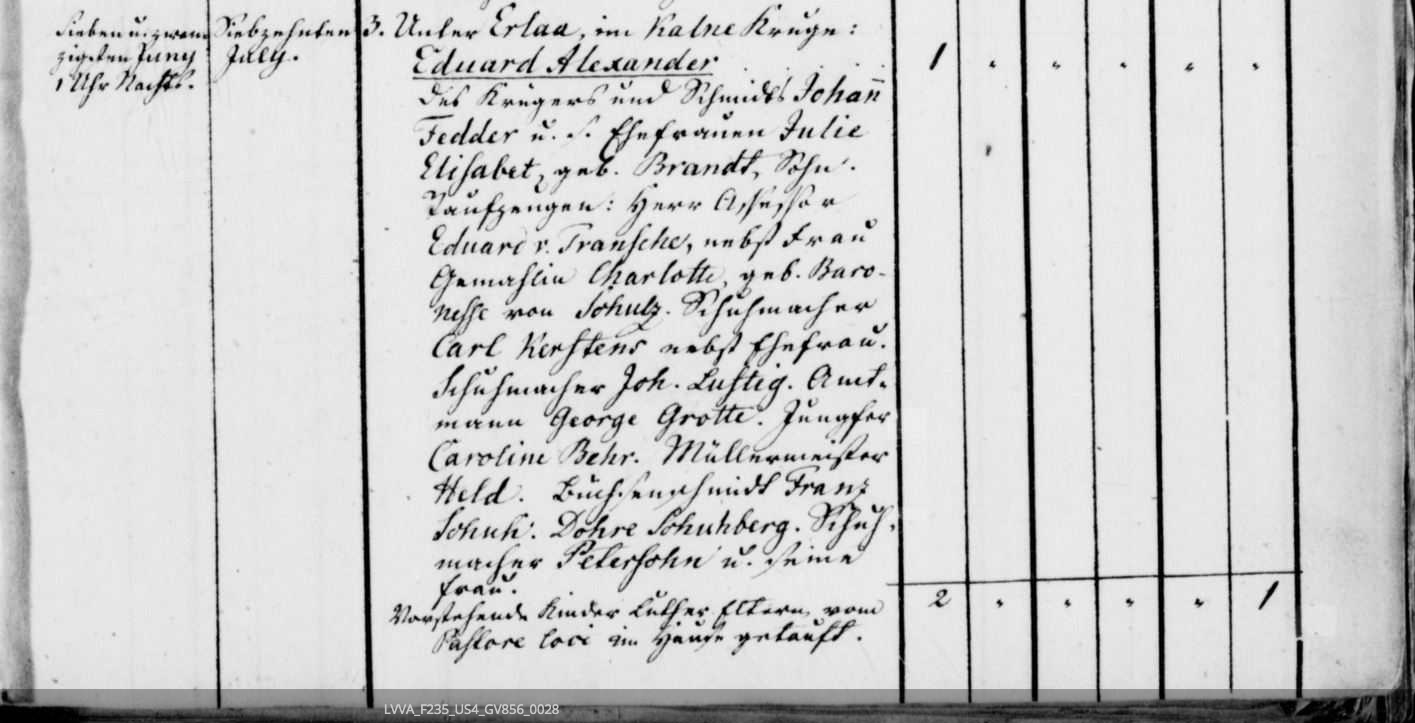 Sieben u. zwan-
zigsten Juny
1 Uhr Nachts.
Siebzehnten
July.
3. Unter Erlaa, im Kalne Kruge:
Eduard Alexander
1
des Krügers und Schmidts Johan̄
Fedder u. s. Ehefrauen Julie
Elisabet, geb. Brandt, Sohn.
Taufzeugen: Herr Assessor
Eduard v. Transehe, nebst Frau
Gemahlin Charlotte, geb. Baro-
nesse von Schulz. Schuhmacher
Carl Kerstens nebst Ehefrau.
Schuhmacher Joh. Lustig. Amt-
mann George Grotte. Jungfer
Caroline Behr. Müllermeister
Held. Büchsenschmidt Franz
Schuh. Dohre Schuhberg. Schuh-
macher Petersohn u. seine
Frau.
2 1
Vorstehende Kinder Luther Eltern, vom
Pastore loci im Hause getauft.
LVVA_F235_US4_GV856_0028